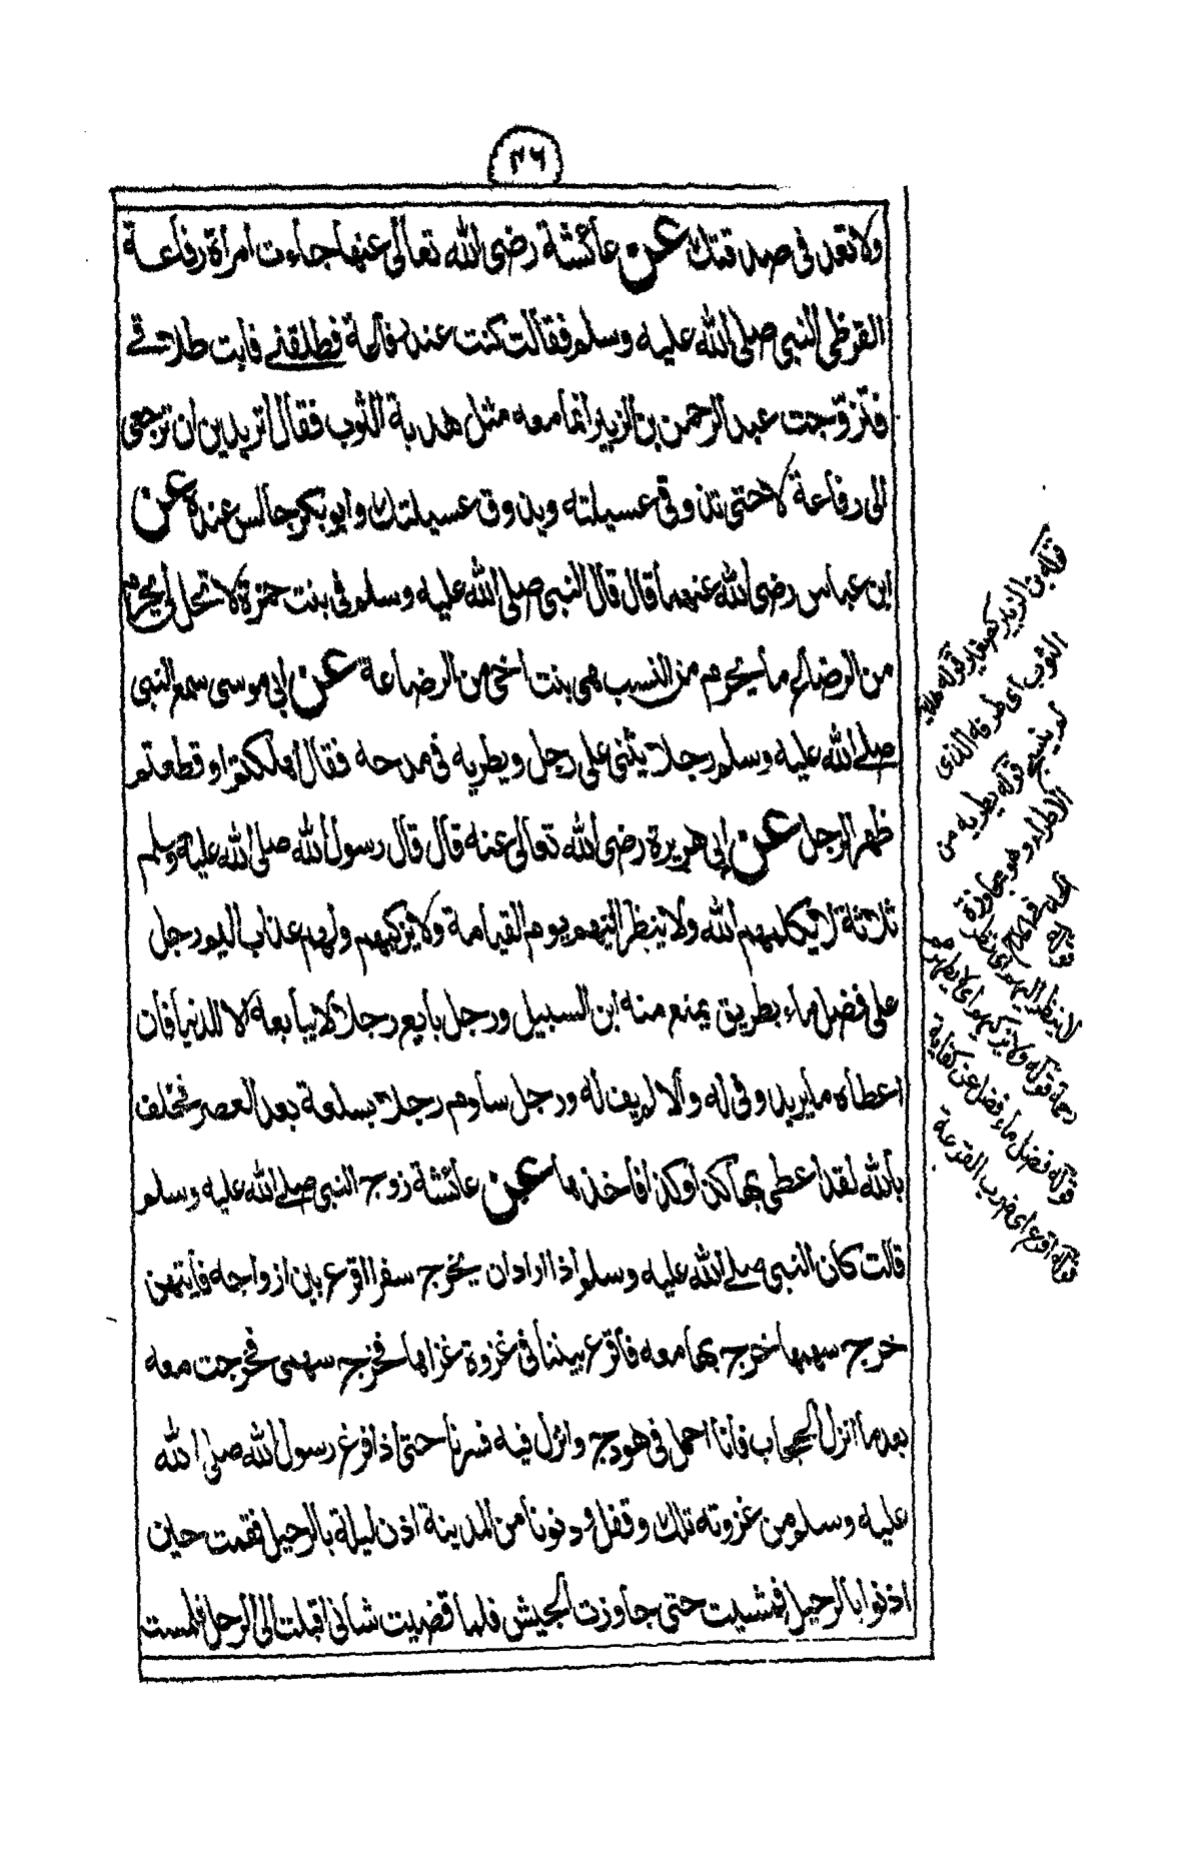 ٣٦
ولا تعد فى صدقتك عن عائشة رضى الله تعالى عنها جاءت امرأة رفاعة
القرظى النبى صلى الله عليه وسلم فقالت كنت عند رفاعة فطلقنى فابت طلاقى
فتزوجت عبد الرحمن بن الزبير انما معه مثل هدبة الثوب فقال اتريدين ان ترجعى
الى رفاعة لا حتى تذوقى عسيلته ويذوق عسيلتك وابو بكر جالس عنده عن
ابن عباس رضى الله عنهما قال قال النبى صلى الله عليه وسلم فى بنت حمزة لا تحل لى يحرم
من الرضاع ما يحرم من النسب هى بنت اخى من الرضاعة عن ابى موسى سمع النبى
صلى الله عليه وسلم رجلا يثنى على رجل ويطريه فى مدحه فقال اهلكتم او قطعتم
ظهر الرجل عن ابى هريرة رضى الله تعالى عنه قال قال رسول الله صلى الله عليه وسلم
ثلاثة لا يكلمهم الله ولا ينظر اليهم يوم القيامة ولا يزكيهم ولهم عذاب اليم رجل
على فضل ماء بطريق يمنع منه ابن السبيل ورجل بايع رجلا لا يبايعه الا للدنيا فان
اعطاه ما يريد وفى له والا لم يف له ورجل ساوم رجلا بسلعة بعد العصر فحلف
بالله لقد اعطى بها كذا وكذا فاخذها عن عائشة زوج النبى صلى الله عليه وسلم
قالت كان النبى صلى الله عليه وسلم اذا اراد ان يخرج سفرا اقرع بين ازواجه فايتهن
خرج سهمها خرج بها معه فاقرع بيننا فى غزوة غزاها فخرج سهمى فخرجت معه
بعد ما انزل الحجاب فانا احمل فى هودج وانزل فيه فسرنا حتى اذا فرغ رسول الله صلى الله
عليه وسلم من غزوته تلك وقفل ودنونا من المدينة اذن ليلة بالرحيل فقمت حين
اذنوا بالرحيل فمشيت حتى جاوزت الجيش فلما قضيت شانى اقبلت الى الرحل فلمست
قوله بن الزبير كصغير قوله هدبة
الثوب اى طرفه الذى
لم ينسج قوله يطريه من
الاطراء وهو مجاوزة
الحد فى المدح قوله
لا ينظر اليهم اى نظر
رحمة قوله ولا يزكيهم اى لا يطهرهم
قوله فضل ماء فضل عن كفاية
قوله اقرع اى ضرب القرعة